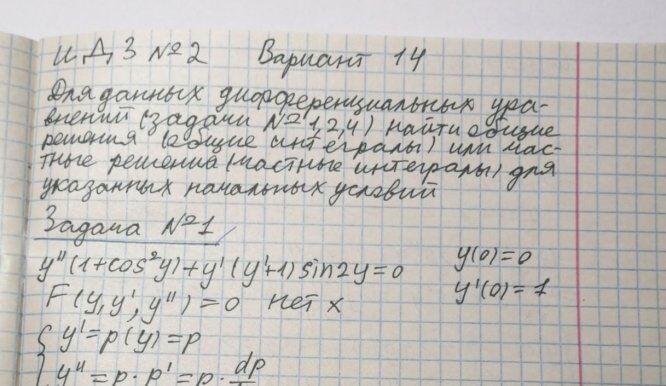 И Д З №2 Вариант 14
Для данных дифференциальных урав-
внений (задачи №1,2,4) найти общие
решения (общие интегралы) или час-
тные решения (частные интегралы) для
указанных начальных условий
Задача №1
y''(1+cos²y)+y'(y'+1)sin2y=0 y(0)=0
F(y,y',y'')=0 нет x y'(0)=1
y'=p(y)=p
y''=p·p'=p·dp